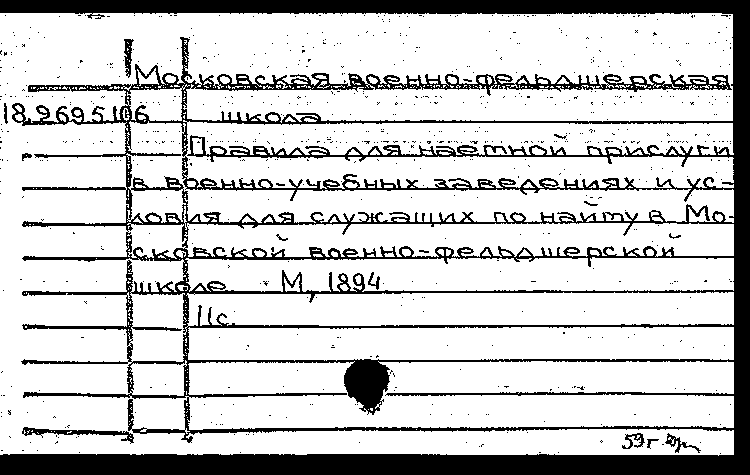 Московская военно-фельдшерская
18.269.5.106 школа
Правила для наемной прислуги
в военно-учебных заведениях и ус-
ловия для служащих по найму в Мо-
сковской военно-фельдшерской
школе. М., 1894
11с.
59г.